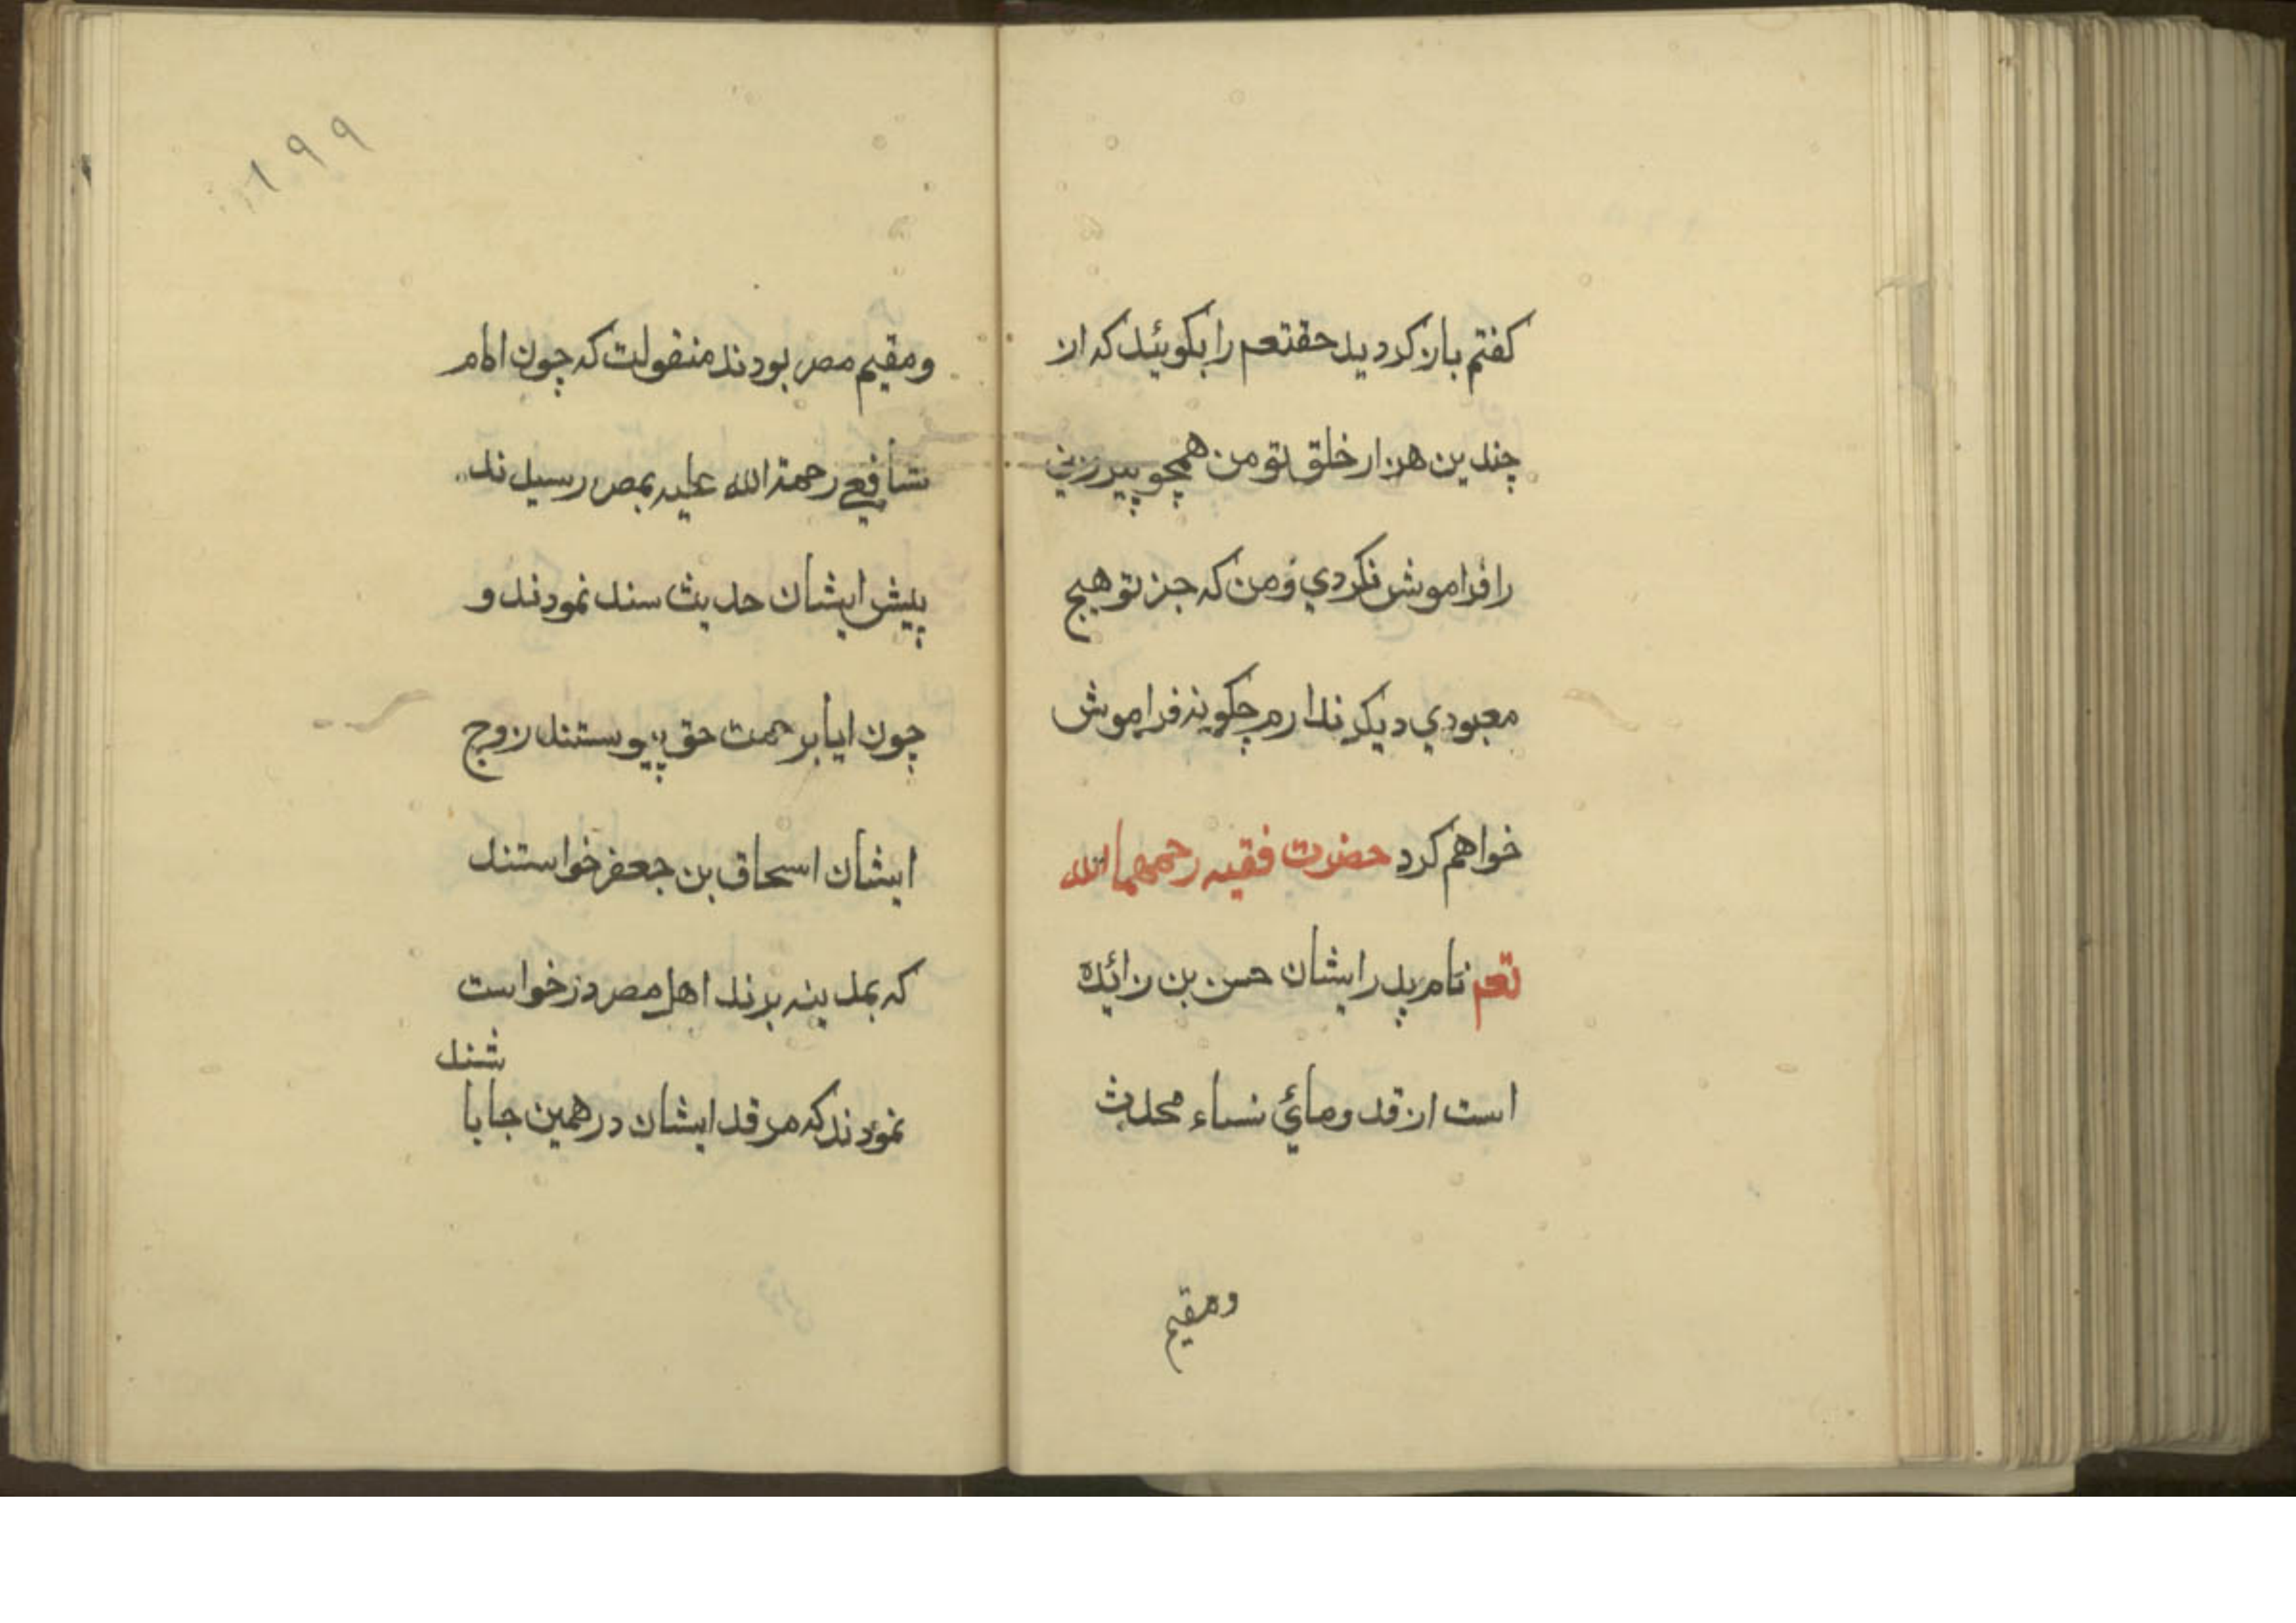 کفتم باز کردید حقتعم را بکوئید که از
چندین هزار خلق تو من همچو پیرزنی
را فراموش نکردی و من که جز تو هیچ
معبودي دیکر ندارم چکونه فراموش
خواهم کرد حضرت فقیه رحمهما الله
تعم نام پدر ایشان حسن بن زائده
است از قدومائي نساء محدث
ومقیم
۱۹۹
ومقیم مصر بودند منقولت که چون امام
شافعي رحمة الله علیه بمصر رسیدند
پیش ایشان حدیث سند نمودند و
چون ایا برحمت حق پیوستند زوج
ایشان اسحاق بن جعفر خواستند
که بمدینه برند اهل مصر درخواست
نمودند که مرقد ایشان در همین جا با
شند